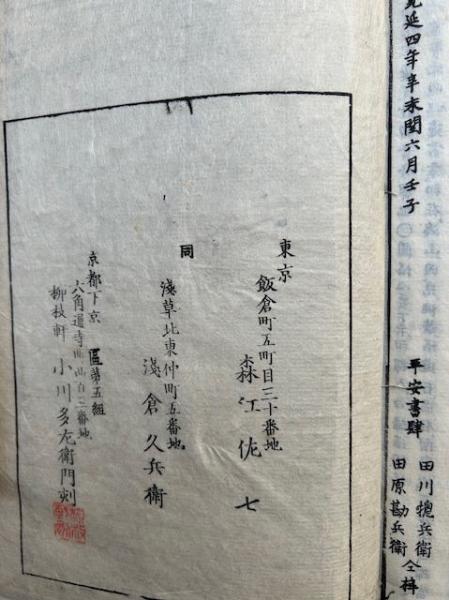 寛延四年辛未閏六月壬子
平安書肆
田川
兵衛
田原勘兵衛
仝梓
東京
飯倉町五町目三十番地
森江佐七
同
淺草北東仲町五番地
淺倉久兵衛
京都下京
區第五組
六角通寺町
番地
柳枝軒
小川多左衛門